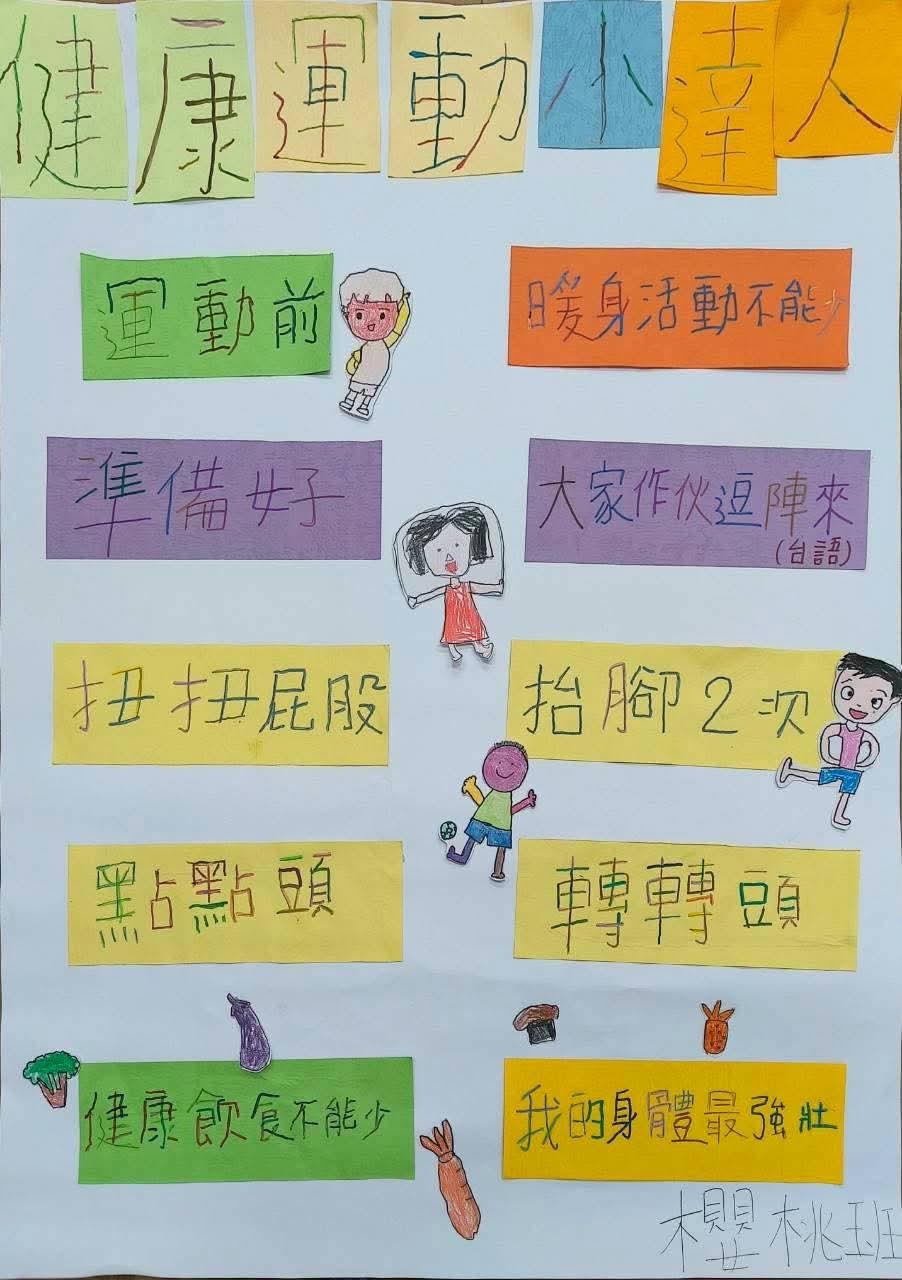 健康運動小達人
運動前 暖身活動不能少
準備好 大家作伙逗陣來
(台語)
扭扭屁股 抬腳2次
點點頭 轉轉頭
健康飲食不能少 我的身體最強壯
櫻桃班